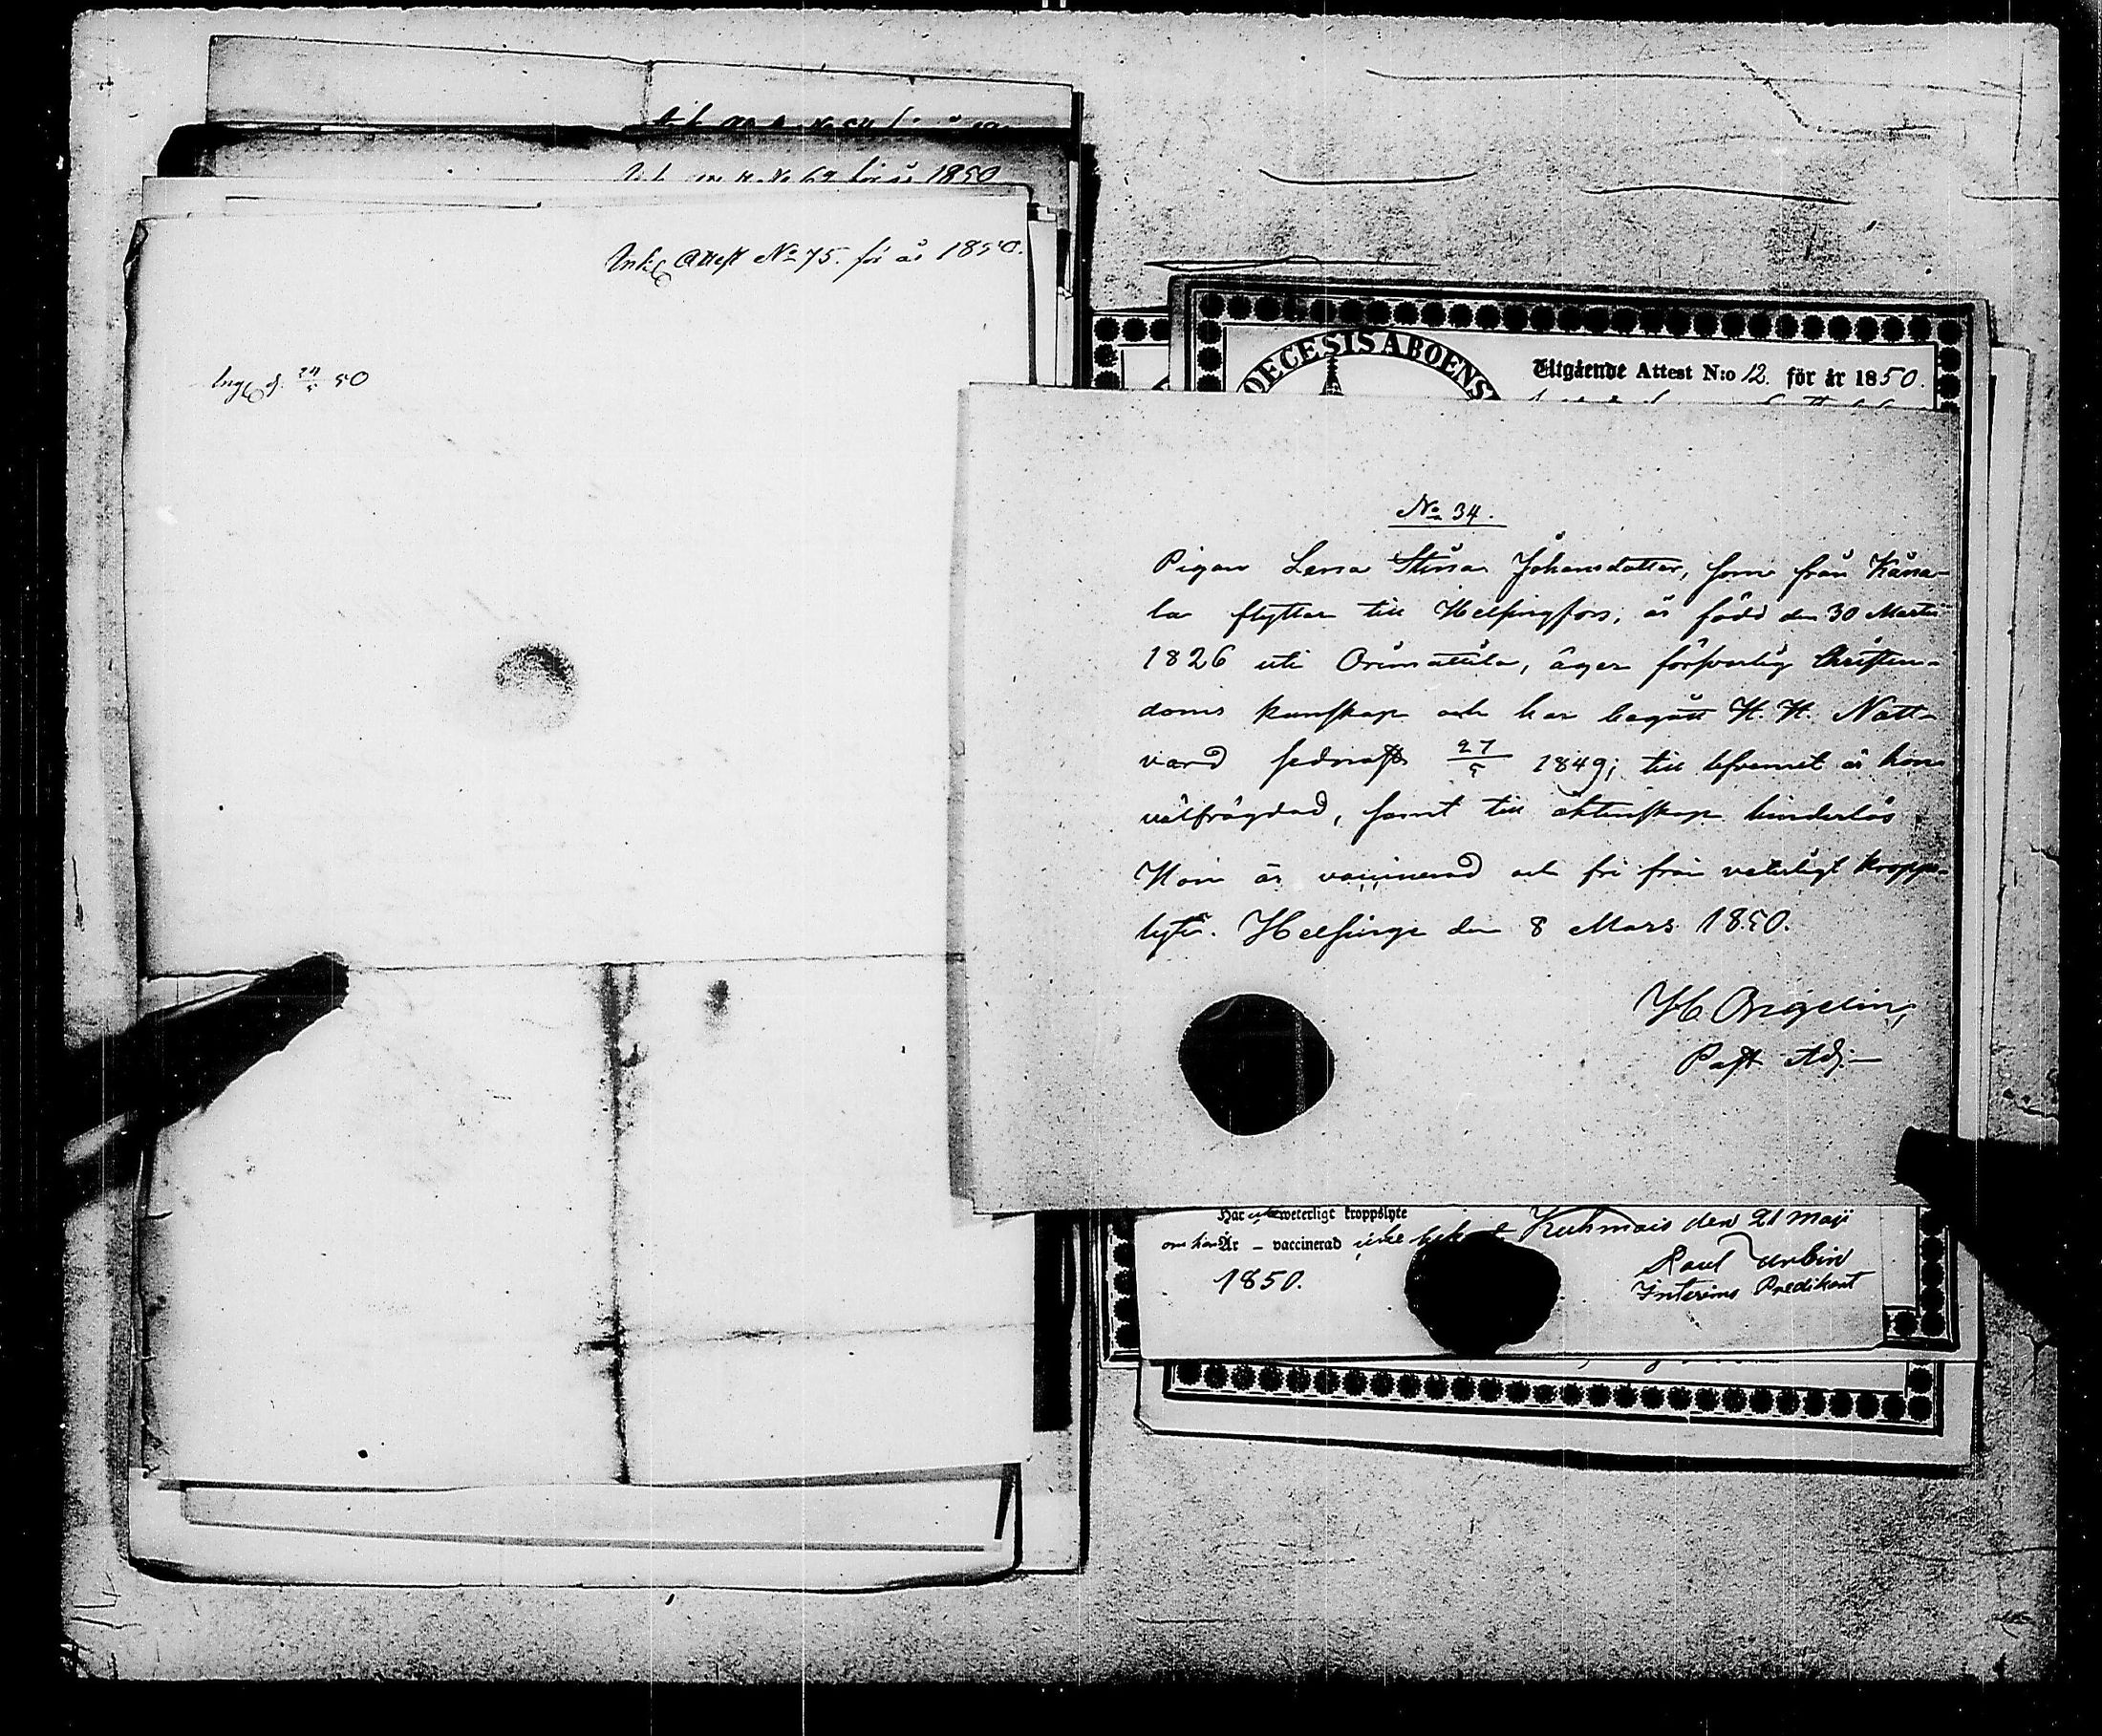 No 62 för år 1850
Ink: Attest No 75. för år 1850.
Ing. d. 24/5 50
DIOECESIS ABOENS
Utgående Attest N:o 12. för år 1850.
No 34.
Pigan Lena Stina Johansdotter, som från Kåna-
la flyttar till Helsingfors, är född den 30 Martii
1826 uti Orimattila, äger försvarlig Christen-
doms kunskap och har begått H. H. Natt-
vard sednast 27/5 1849; till lefvernet är hon
välfrägdad, samt till äktenskap hinderlös.
Hon är vaccinerad och fri från veterligt kropps-
lyte. Helsinge den 8 Mars 1850.
H Angelin,
Past. Adj.
Har weterligt kroppslyte
om hon Är – vaccinerad icke bekant Kuhmois den 21 Maji
1850.
Interims Predikant